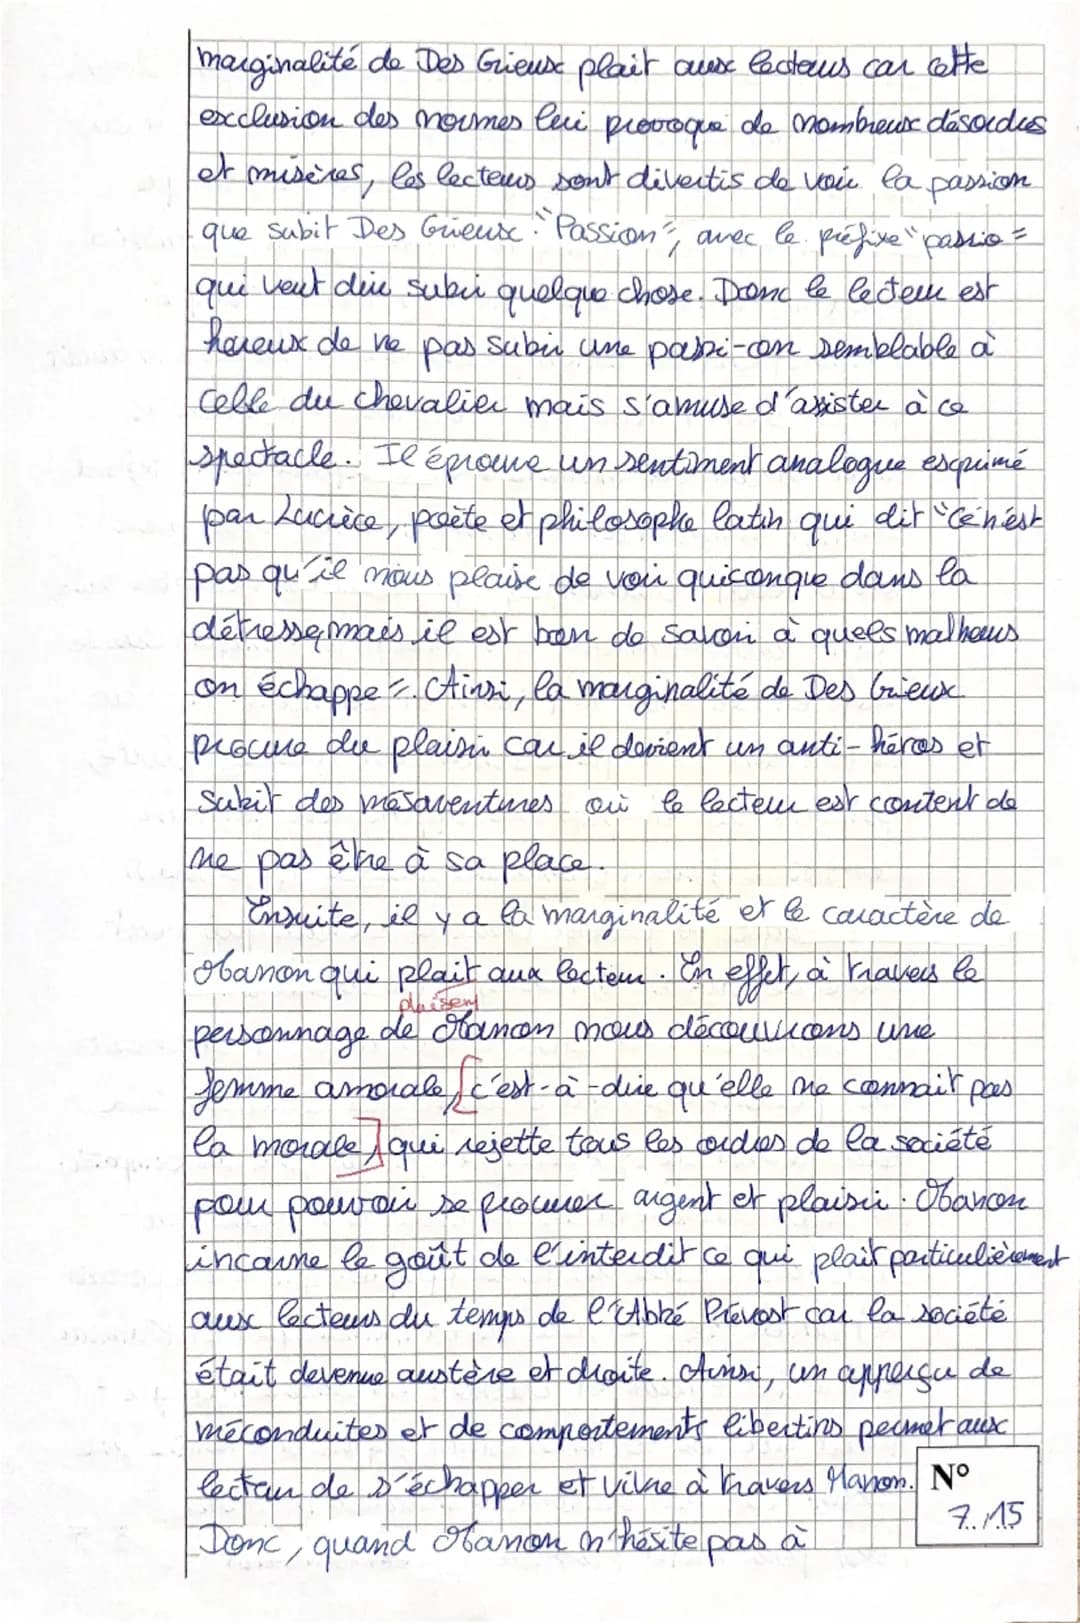 marginalité de Des Grieux plait aux lecteurs car cette
exclusion des normes lui provoque de nombreux désordres
et misères, les lecteurs sont divertis de voir la passion
que subit Des Grieux. "Passion", avec le préfixe "passio"
qui veut dire subir quelque chose. Donc le lecteur est
hereux de ne pas subir une passi-on semblable à
celle du chevalier mais s'amuse d'assister à ce
spectacle. Il éprouve un sentiment analogue exprimé
par Lucrèce, poète et philosophe latin qui dit "Ce n'est
pas qu'il nous plaise de voir quiconque dans la
détresse, mais il est bon de savoir à quels malheurs
on échappe". Ainsi, la marginalité de Des Grieux
procure du plaisir car il devient un anti-héros et
subit des mésaventures où le lecteur est content de
ne pas être à sa place.
Ensuite, il y a la marginalité et le caractère de
Manon qui plait aux lecteur. En effet, à travers le
plaisent
personnage de Manon nous découvrons une
femme amorale, [c'est-à-dire qu'elle ne connait pas
la morale,] qui rejette tous les ordres de la société
pour pouvoir se procurer argent et plaisir. Manon
incarne le goût de l'interdit ce qui plait particulièrement
aux lecteurs du temps de l'Abbé Prévost car la société
était devenue austère et droite. Ainsi, un apperçu de
méconduites et de comportements libertins permet aux
lecteur de s'échapper et vivre à travers Manon.
Donc, quand Manon n'hésite pas à
N°
7../15